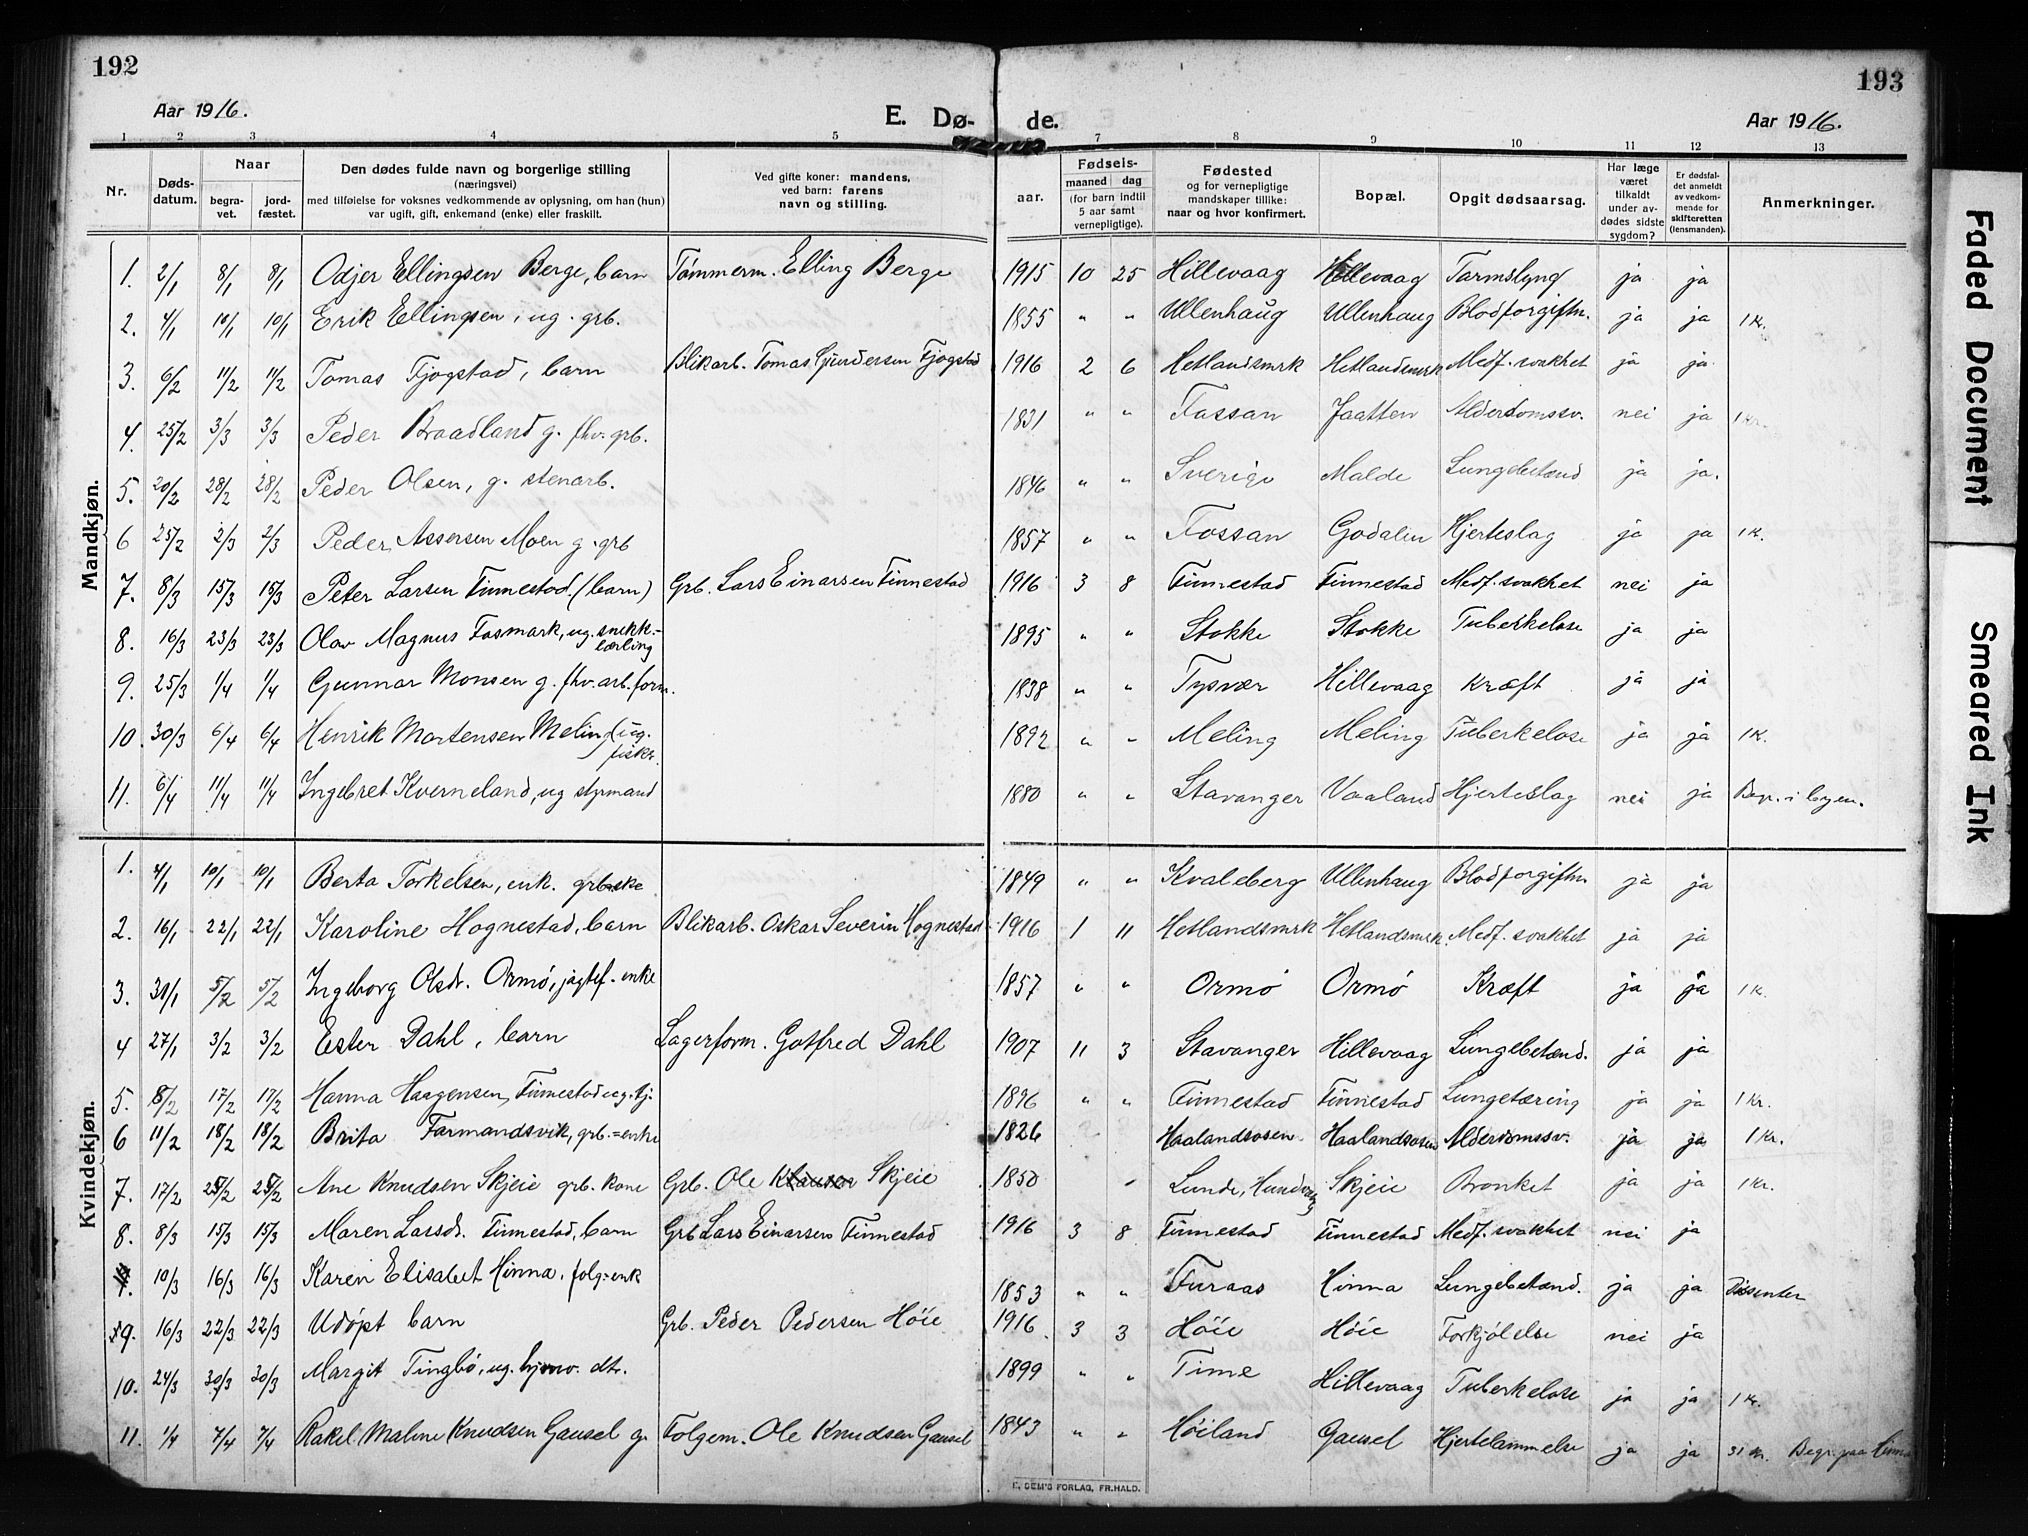 192
193
Aar 1916.
E. Dø-
de.
Aar 1916.
1 2 3 4 5 7 8 9 10 11 12 13
Nr.
Døds-
datum.
Naar
begra-
vet.
jord-
fæstet.
Den dødes fulde navn og borgerlige stilling
(næringsvei)
med tilføielse for voksnes vedkommende av oplysning, om han (hun)
var ugift, gift, enkemand (enke) eller fraskilt.
Ved gifte koner: mandens,
ved barn: farens
navn og stilling.
aar.
Fødsels-
maaned dag
(for barn indtil
5 aar samt
vernepligtige).
Fødested
og for vernepligtige
mandskaper tillike:
naar og hvor konfirmert.
Bopæl.
Opgit dødsaarsag.
Har læge
været
tilkaldt
under av-
dødes sidste
sygdom?
Er dødsfal-
det anmeldt
av vedkom-
mende for
skifteretten
(lensmanden).
Anmerkninger.
Mandkjøn.
1. 2/1 8/1 8/1 Odjer Ellingsen Berge, barn Tømmerm. Elling Berge 1915 10 25 Hillevaag Hillevaag Tarmslyng ja ja
2. 4/1 10/1 10/1 Erik Ellingsen, ug. grb. 1855 " " Ullenhaug Ullenhaug Blodforgiftn. ja ja 1 K.
3. 6/2 11/2 11/2 Tomas Fjogstad, barn Blikarb. Tomas Gundersen Fjogstad 1916 2 6 Hetlandsmrk Hetlandsmrk Medf. svakhet ja ja.
4. 25/2 3/3 3/3 Peder Braadland g. fhv. grb. 1831 " " Fossan Jaatten Alderdomssv. nei ja 1 Kr.
5. 20/2 28/2 28/2 Peder Olsen, g. stenarb. 1846 " " Sverige Malde Lungebetænd ja ja.
6 25/2 2/3 2/3 Peder Assersen Moen g. grb 1857 " " Fossan Godalen Hjerteslag ja ja 1 K.
7. 8/3 15/3 15/3 Peter Larsen Finnestad. (barn) Grb. Lars Einarsen Finnestad 1916 3 8 Finnestad Finnestad Medf. svakhet nei ja
8. 16/3 23/3 23/3 Olav Magnus Fosmark, ug. snekk.-
lærling 1895 " " Stokke Stokke Tuberkelose ja ja
9. 25/3 1/4 1/4 Gunnar Monsen g. fhv. arb. form. 1838 " " Tysvær Hillevaag Kræft ja ja
10. 30/3 6/4 6/4 Henrik Mortensen Meling ug.
fisker. 1892 " " Meling Meling Tuberkelose ja ja 1 K.
11. 6/4 11/4 11/4 Ingebret Kverneland, ug styrmand 1880 " " Stavanger Vaaland Hjerteslag nei ja Begr. i byen.
Kvindekjøn.
1. 4/1 10/1 10/1 Berta Torkelsen, enk. grbrske 1849 " " Kvaleberg Ullenhaug Blodforgiftn ja ja
2. 16/1 22/1 22/1 Karoline Hognestad, barn Blikarb. Oskar Severin Hognestad 1916 1 11 Hetlandsmrk Hetlandsmrk. Medf. svakhet ja ja
3. 31/1 5/2 5/2 Ingeborg Olsdr. Ormø, jagtef. enke 1857 " " Ormø Ormø Kræft ja ja 1 K.
4 27/1 3/2 3/2 Ester Dahl, barn Lagerform. Gotfred Dahl 1907 11 3 Stavanger Hillevaag Lungebetænd. ja ja
5. 8/2 17/2 17/2 Hanna Haagensen, Finnestad ug. tj. 1896 " " Finnestad Finnestad Lungetæring ja ja 1 Kr.
6 11/2 18/2 18/2 Brita Farmandsvik, grb.=enke 1826 Haalandsosen Haalandsosen Alderdomssv. ja ja 1 Kr.
7. 17/2 25/2 25/2 Ane Knudsen Skjeie grb. kone Grb. Ole Skjeie 1850 " Lunde, Hundvaag Skjeie Bronket ja ja 1 Kr.
8. 8/3 15/3 15/3 Maren Larsdr. Finnestad, barn Grb Lars Einarsen Finnestad 1916 3 8 Finnestad Finnestad Medf. svakhet nei ja
10/3 16/3 16/3 Karen Elisabet Hinna, folg=enk 1853 " " Furaas Hinna Lungebetænd. ja ja Dissenter
9. 16/3 22/3 22/3 Udøpt barn Grb. Peder Pedersen Høie 1916 3 3 Høie Høie Forkjølelse nei ja
10. 24/3 30/3 30/3 Margit Tingbø, ug. hjmv. dtr. 1899 " " Time Hillevaag Tuberkelose ja ja 1 Kr.
11. 1/4 7/4 7/4 Rakel Maline Knudsen Gausel g. Folgem. Ole Knudsen Gausel 1843 " " Høiland Gausel Hjertelammelse ja ja 31 Kr. Begr. paa Hinna
E. SEM'S FORLAG, FR.HALD.
Faded Document
Smeared Ink